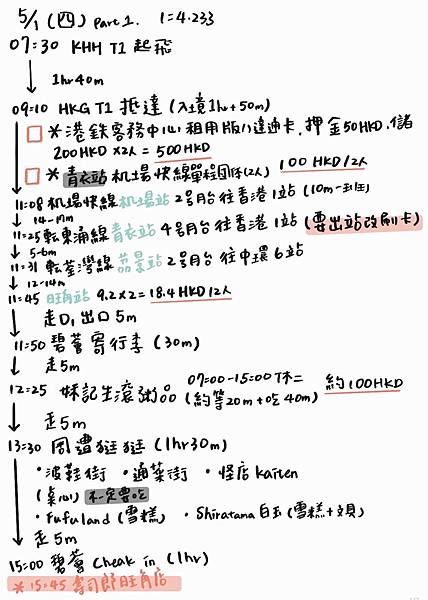 5/1 (四) Part 1. 1=4.233
07:30 KHH T1 起飛
1hr 40m
09:10 HKG T1 抵達 (入境1hr+50m)
※港鉄客務中心租用版八達通卡.押金50HKD.儲
200HKD x2人 = 500HKD
※青衣站机場快線單程团体(2人) 100 HKD/2人
11:08 机場快線机場站 2号月台往香港1站 (10m一班)
14-17m
11:25 転東涌線青衣站 4号月台往香港1站 (要出站改刷卡)
5-6m
11:31 転荃灣線荔景站 2号月台 往中環6站
12-14m
11:45 旺角站 9.2x2=18.4HKD/2人
走D1出口5m
11:50 碧薈寄行李 (30m)
走5m
12:25 妹記生滾粥品 07:00-15:00 休二 約100HKD
(約等20m+吃40m)
走5m
13:30 周遭逛逛 (1hr30m)
・波鞋街 ・通菜街 ・怪店kaiten
(桌心) 不一定要吃
・Fufuland (雪糕) ・Shiratana 白玉 (雪糕+文具)
走5m
15:00 碧薈 Cheak in (1hr)
※15:45 壽司郎旺角店